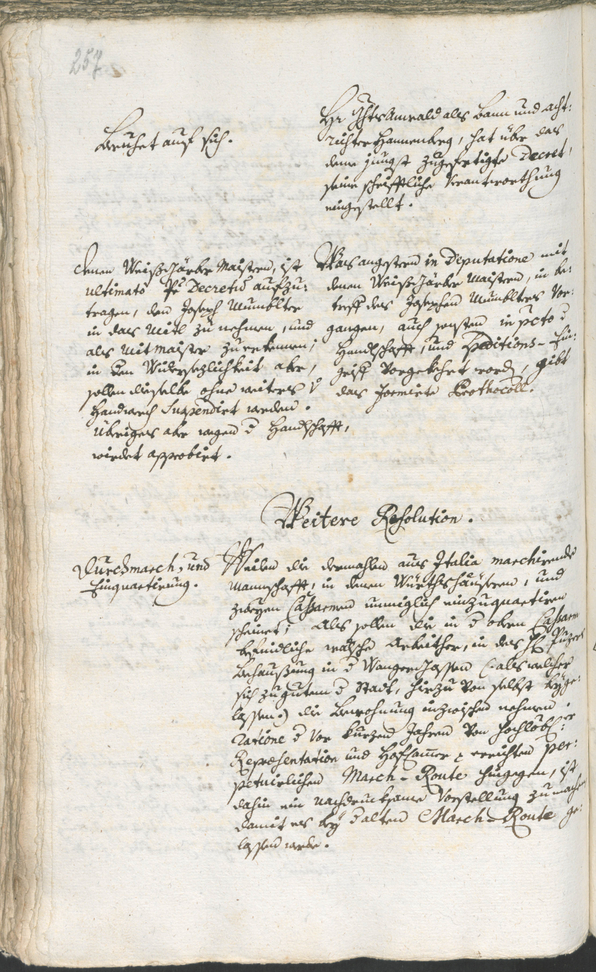 257
Beruhet auf sich.
Hr Ghts Anwald als Bann und acht:
richter Hannenberg, hat über das
deme jüngst zugefertigte Decret,
seine schrifftliche Verantworthung
eingestellt.
denen Weißgärber Maistern, ist
ultimato P Decretū aufzu:
tragen, den Joseph Mumblter
in das Mitl zu nehmen, und
als Mitmaister zu erkennen;
in dem Widersezlichkeit aber,
sollen dieselbe ohne weiters
Handwerch Suspendirt werden.
übriges aber wegen d Handschafft,
wirdet approbirt.
Was angestern in Deputatione mit
denen Weißgärber Maistern, in be:
treff des Josephen Mumblters Vor:
gangen, auch sonsten in pcto d
Handlschafft, und Speditions-Ein:
griff vorgekehrt word, gibt
das formirte Prothocoll.
Weitere Resolution.
Durchmarch, und
Einquartierung.
Weilen die dermahlen aus Italia marchirende
Mannschafft, in denen Würthshäusern, und
zweyen Casarmen unmöglich einzuquartiren
scheinet; Als sollen die in d obern Casarm
befindliche wälsche Arbeither, in das
Behaußung in d Wangergassen (: als welcher
sich zu gutem d Stadt, hierzu von selbst bege:
lassen :) die Bewohnung inzwischen nehmen.
ratione d vor kurzen Jahren von hochlöbl:
Repræsentation und Hofcamer errichten per:
petuirlichen March-Route hingegen, ist
dahin ein nachdrucksame Vorstellung zu machen
damit es bey d alten March-Route ge:
lassen werde.